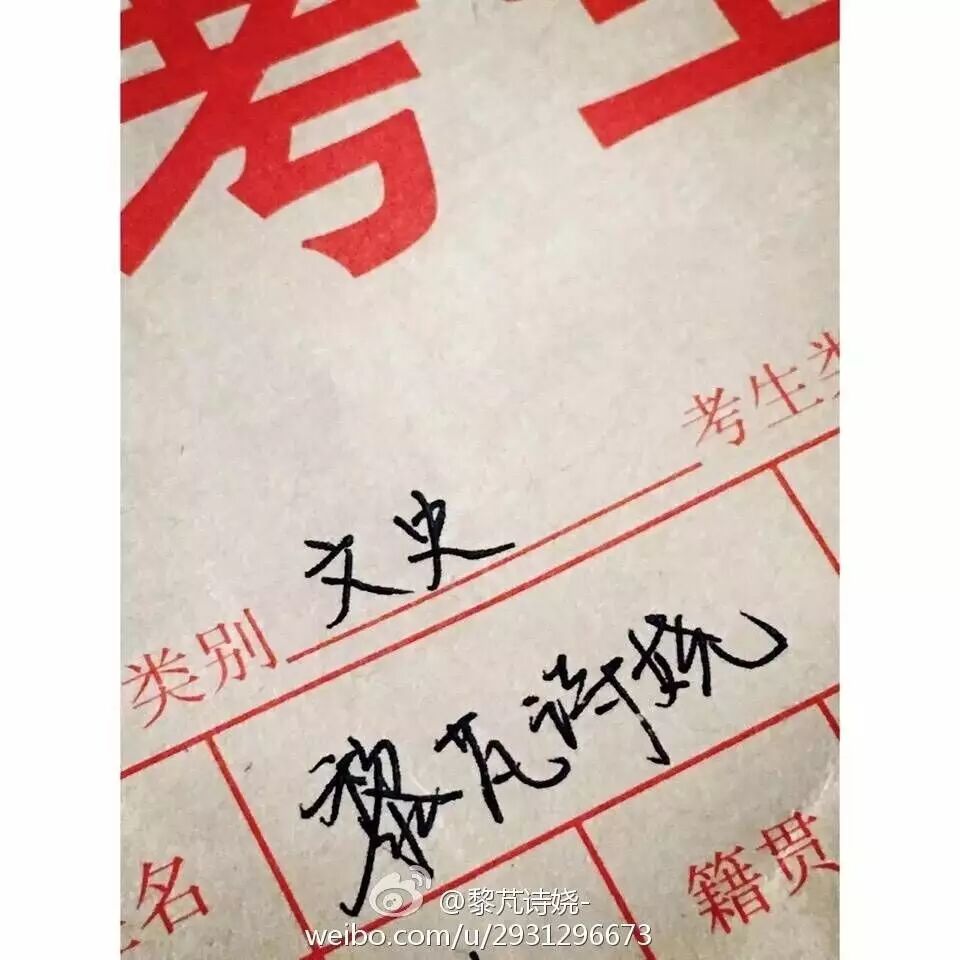 考生
考生类
类别 文史
姓名 黎芃诗娆
籍贯
@黎芃诗娆-
weibo.com/u/2931296673